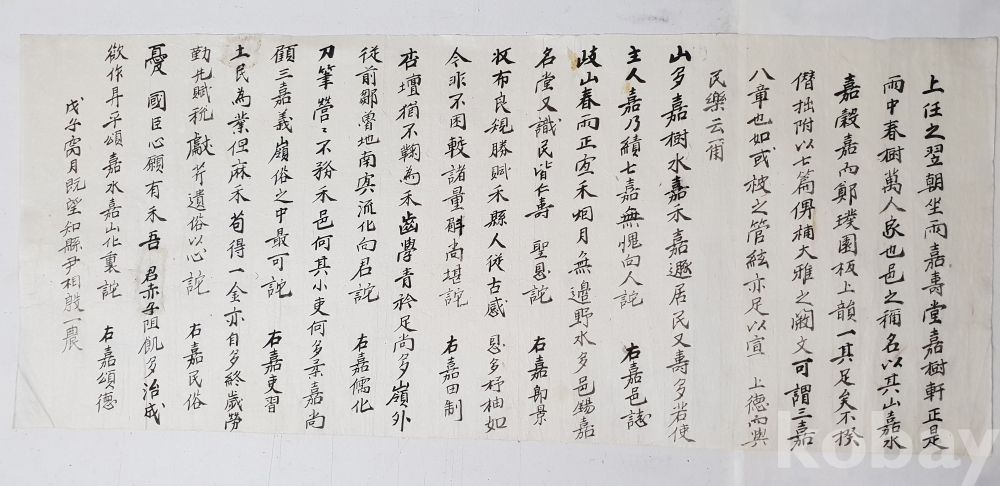 上任之翌朝坐而嘉壽堂嘉樹軒正是
而中春樹萬人家也邑之稱名以其山嘉水
嘉穀嘉而鄭璞園板上韻一其足矣不揆
僭拙附以七篇俾補大雅之闕文可謂三嘉
八章也如或被之管絃亦足以宣 上德而與
民樂云爾
山多嘉樹水嘉禾嘉遯居民又壽多若使
主人嘉乃績七嘉無愧向人詫 右嘉邑誌
岐山春雨正宜禾烟月無邊野水多邑錫嘉
名堂又識民皆仁壽 聖恩詫 右嘉即景
牧布良規勝賦禾縣人從古感 恩多杼柚如
今非不困較諸量斛尚堪詫 右嘉田制
杏壇猶不鞠為禾齒學青衿足尚多嶺外
從前鄒魯地南宾流化向君詫 右嘉儒化
刀筆營〻不務禾邑何其小吏何多柔嘉尚
顧三嘉義嶺俗之中最可詫 右嘉吏習
土民為業但麻禾苟得一金亦自多終歲勞
勤先賦稅獻芹遺俗以心詫 右嘉民俗
憂 國臣心願有禾吾 君赤子阻飢多治成
欲作昇平頌嘉水嘉山化裏詫 右嘉頌德
戊子窝月既望知縣尹相殷一農
kobay